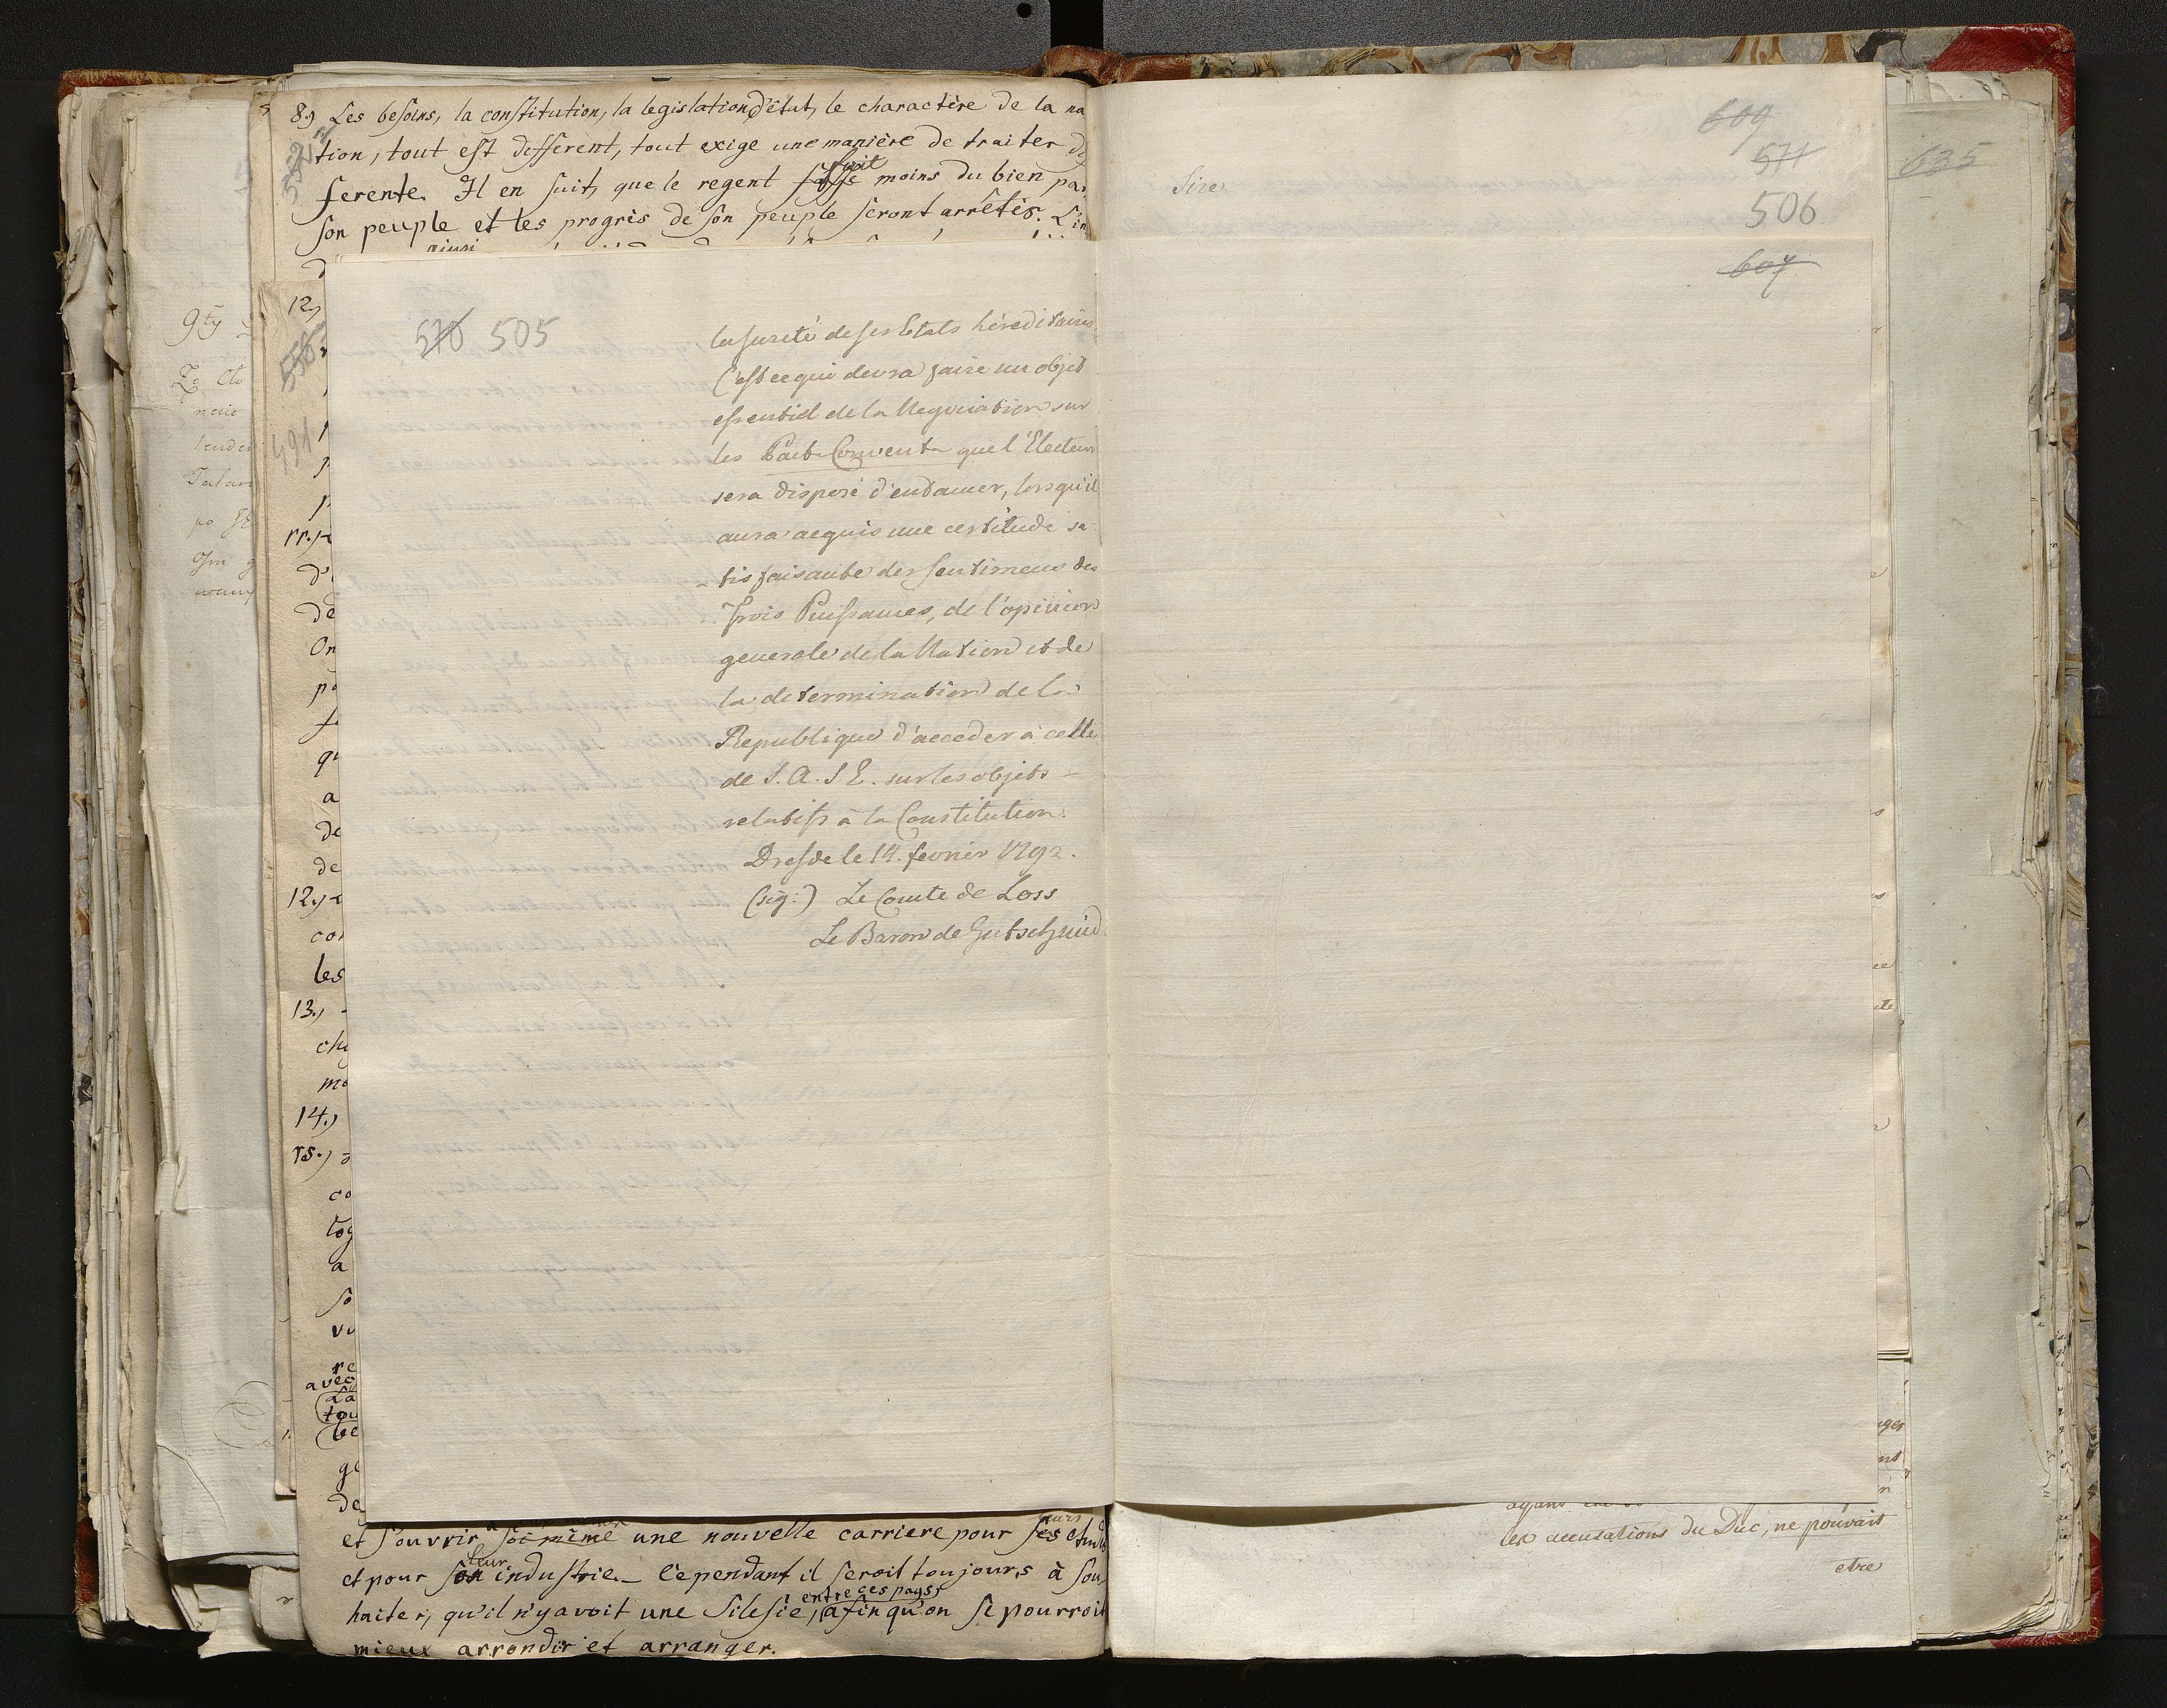 8.) Les besoins, la constitution, la legislation d'état, le charactère de la na
tion, tout est different, tout exige une manière de traiter
ferente. Il en suit, que le regent fait moins du bien par
son peuple et les progrès de son peuple seront arrêtés.
ainsi
570 505
la sureté de ses Etats héréditaires.
C'est ce qui devra faire un objet
essentiel de la Negociation sur
les Pacta Conventa que l'Electeur
sera disposé d'entamer, lorsqu'il
aura acquis une certitude sa-
-tisfaisante des sentimens des
Trois Puissances, de l'opinion
generale de la Nation et de
la determination de la
Republique d'acceder à celle
de S. A. S E. sur les objets
relatifs à la Constitution.
Dresde le 14. fevrier 1792.
(sig:) Le Comte de Loss
Le Baron de Gutschmid
12.)
556
491
11.)
d'
de
On
po
qu
a
de
de
12.)
con
les
13.)
che
mo
14.)
15.)
co
log
a
so
vo
re
avec
La
tou
be
ge
de
et s'ouvrir soi même une nouvelle carriere pour
et pour son leur industrie. Cependant il seroit toujours à sou
haiter, qu'il n'y avoit une Silesie, entre ces pays, afin qu'on se pourroit
mieux arrondir et arranger.
9ty
neie
609
571
506
Sire
607
635
les accusations du Duc, ne pouvait
etre